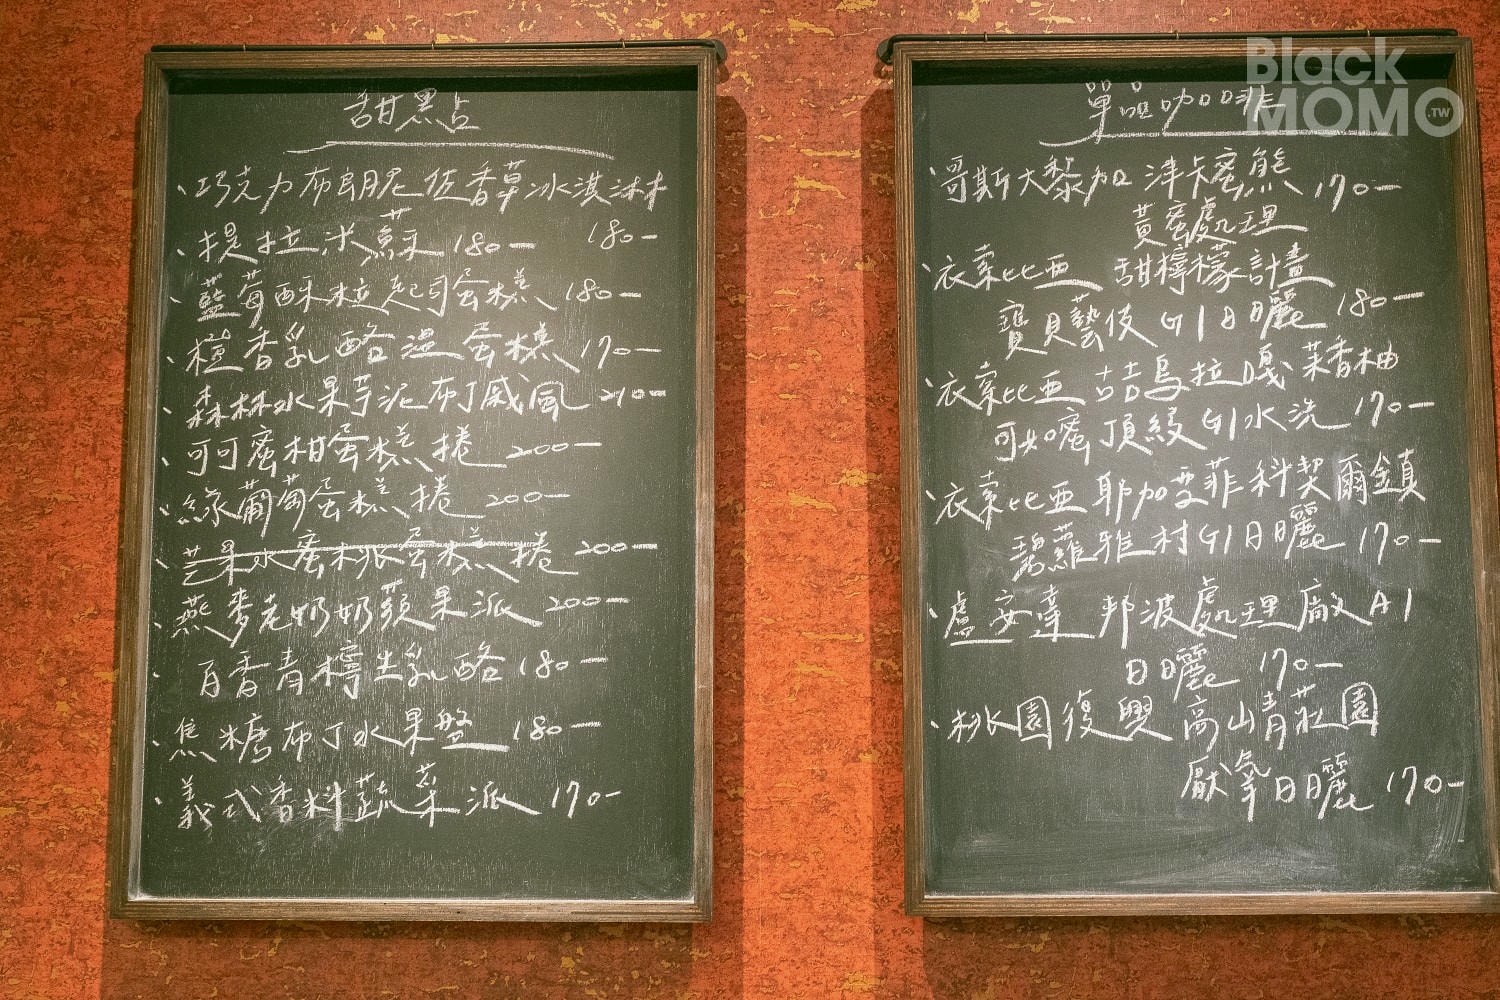 甜黑点
、巧克力布朗尼佐香草冰淇淋
180-
、提拉米蘇 180-
、藍莓酥粒起司蛋糕 180-
、檀香乳酪湿蛋糕 170-
、森林水果芋泥布丁戚風 210-
、可可蜜柑蛋糕捲 200-
、綠葡萄蛋糕捲 200-
、芒果水蜜桃蛋糕捲 200-
、燕麥老奶奶蘋果派 200-
、百香青檸生乳酪 180-
、焦糖布丁水果盤 180-
、義式香料蔬菜派 170-
Black
MOMO.TW
單品咖啡
、哥斯大黎加 津卡蜜熊 170-
黃蜜處理
、衣索比亞 甜檸檬計畫
寶貝藝伎 G1日曬 180-
、衣索比亞 吉吉烏拉嘎 茉香柚
可如蜜頂級G1水洗 170-
、衣索比亞 耶加雪菲科契爾鎮
碧蘿雅村G1日曬 170-
、盧安達 邦波處理廠A1
日曬 170-
、桃園復興 高山青莊園
厭氧日曬 170-